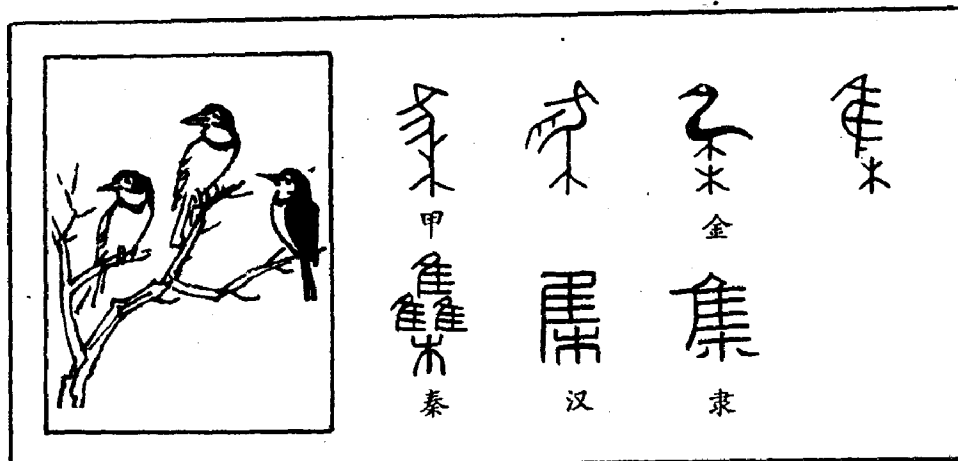 甲 金
雧 集 集
秦 汉 隶